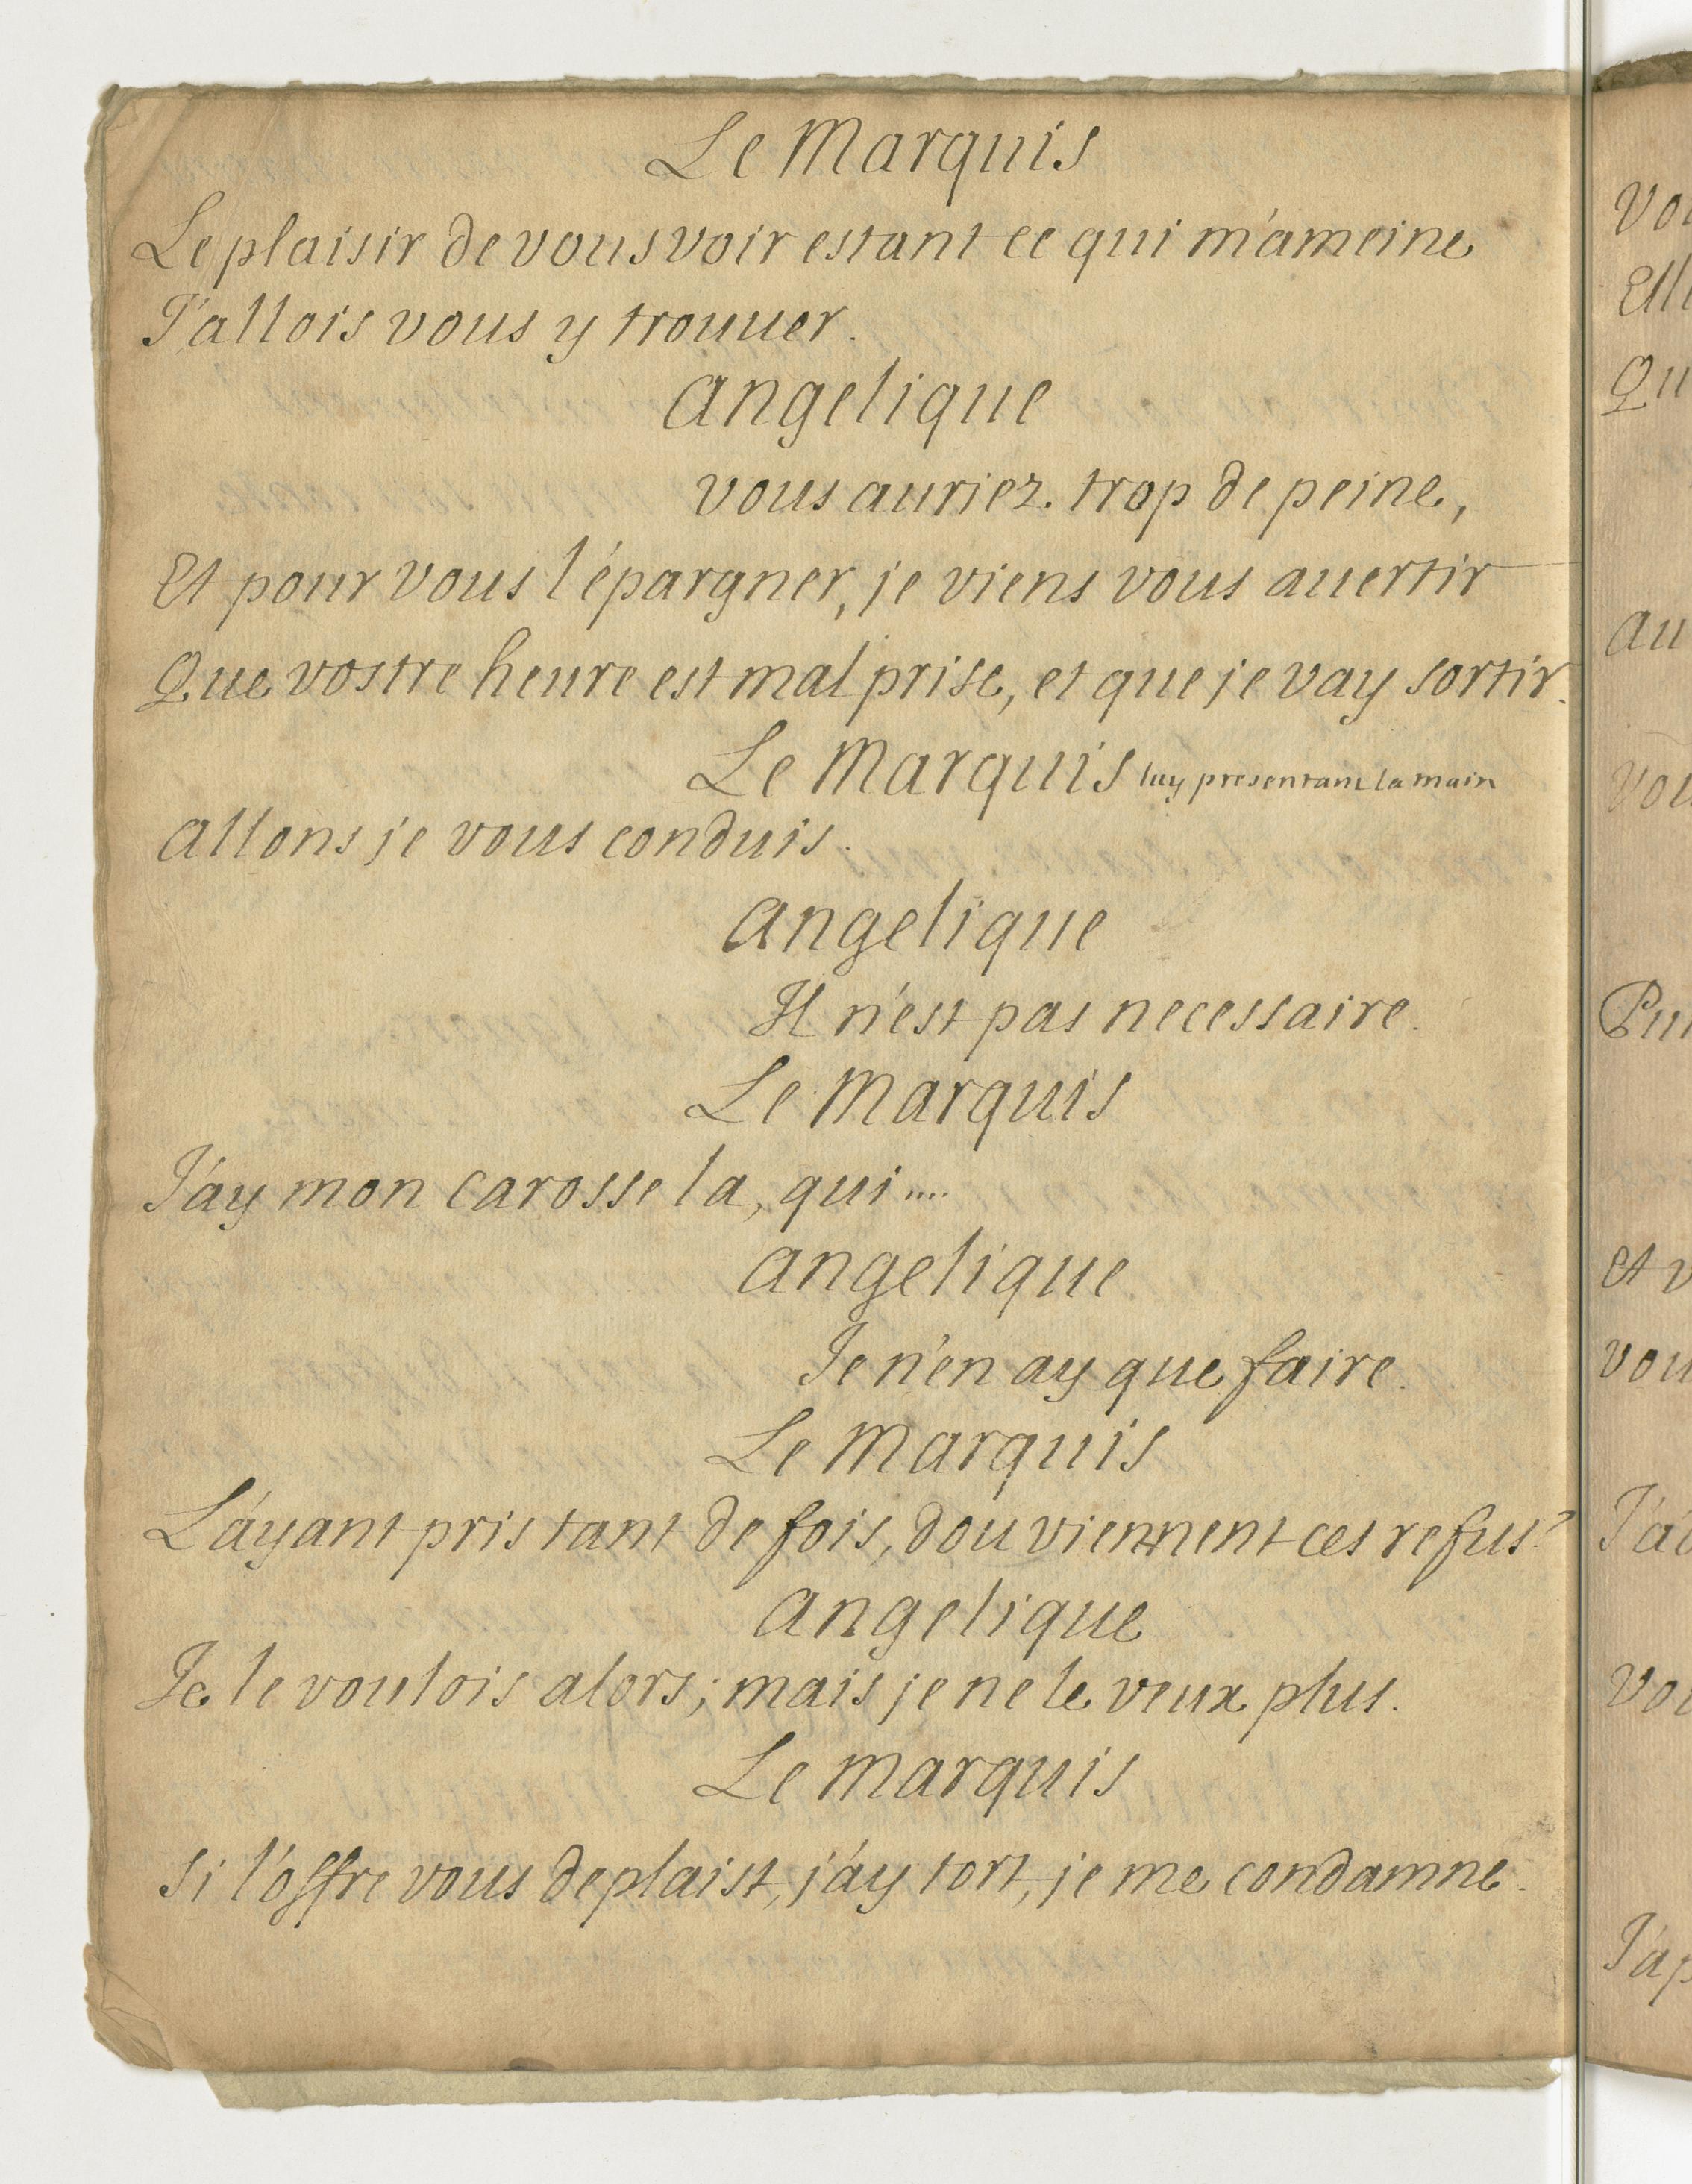 Le Marquis
Le plaisir de vous voir estant ce qui m'ameine
J'allois vous y trouuer.
Angelique
vous auriez trop de peine,
Et pour vous l'épargner, je viens vous auertir
Que vostre heure est mal prise, et que je vay sortir.
Le Marquis luy presentant la main
Allons je vous conduis.
Angelique
Il n'est pas necessaire.
Le Marquis
J'ay mon carosse la, qui....
Angelique
Je n'en ay que faire.
Le Marquis
L'ayant pris tant de fois, dou viennent ces refus?
Angelique
Je le voulois alors; mais je ne le veux plus.
Le Marquis
Si l'offre vous deplaist, j'ay tort, je me condamne.
Et
vou